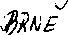 BRNĚ